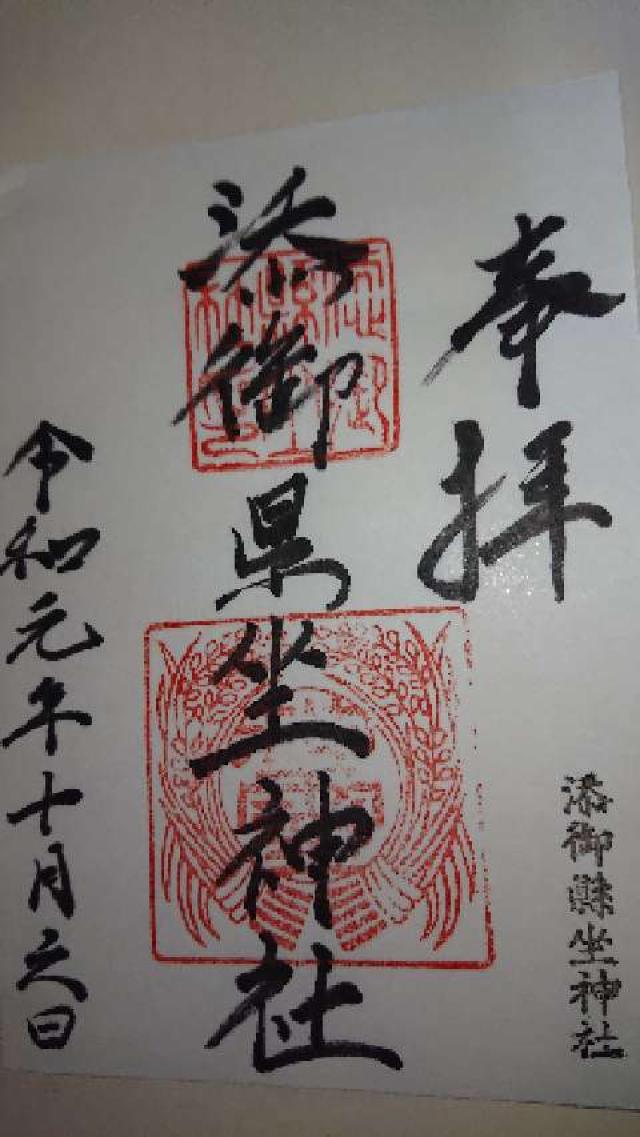 奉拝
添御縣坐神社
添御県坐神社
令和元年十月六日